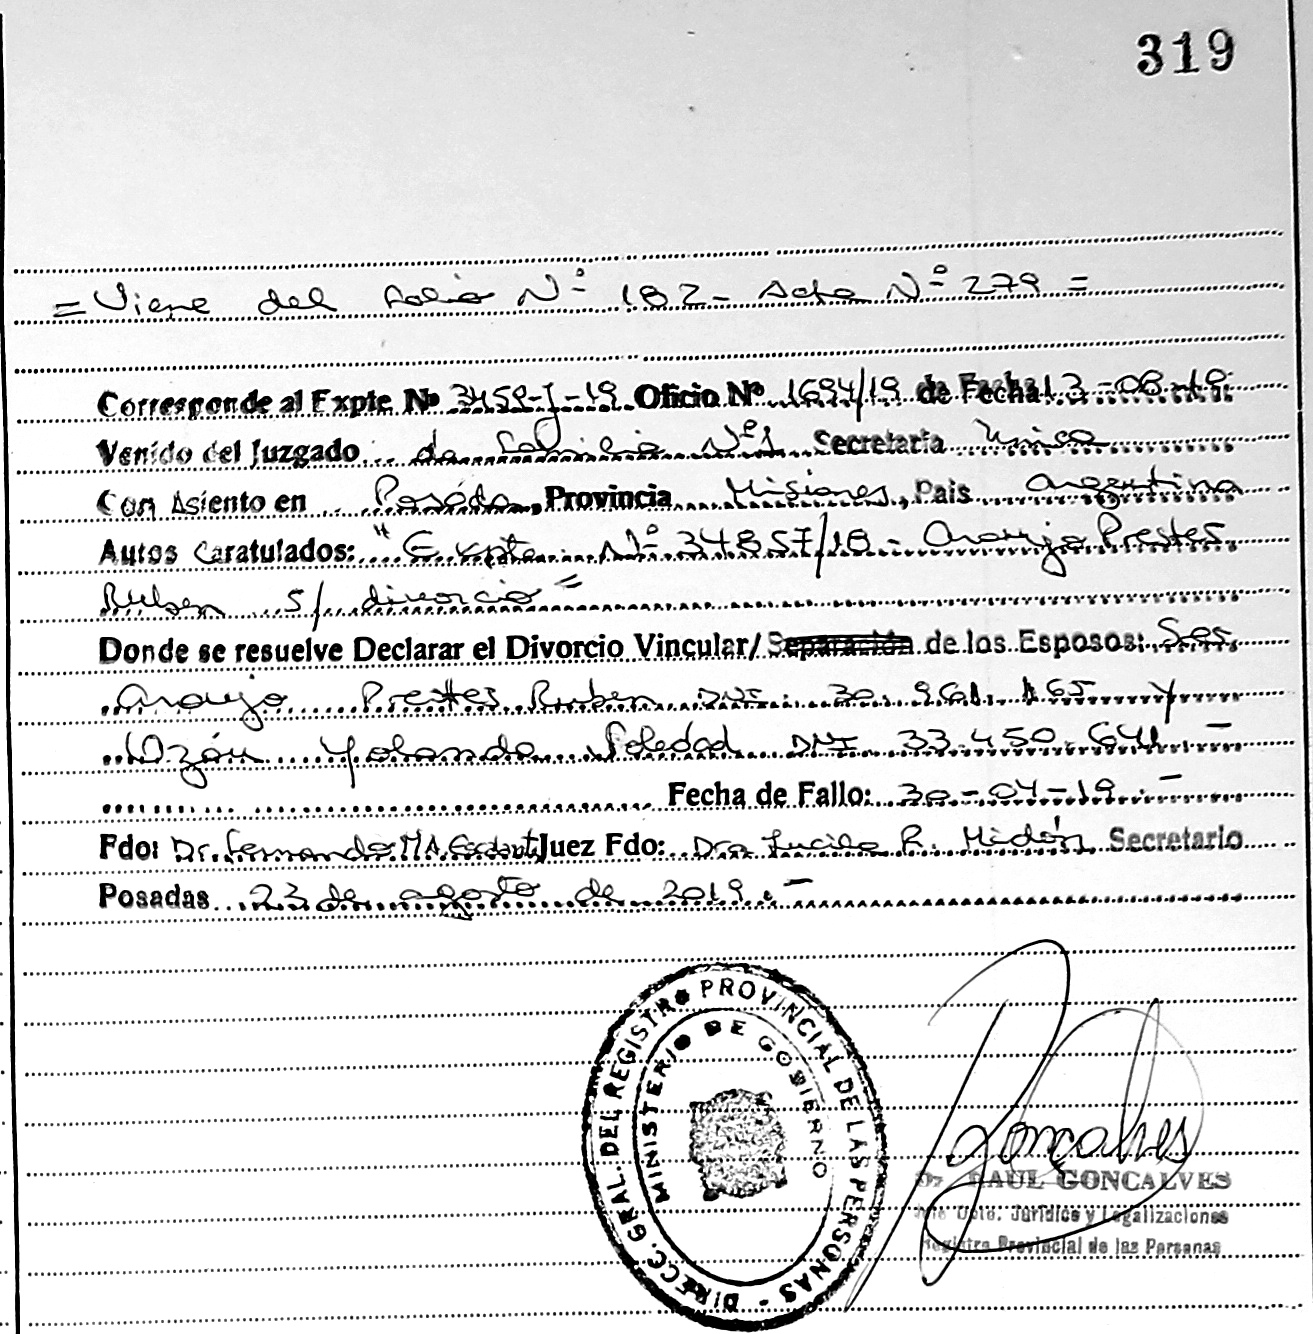 319
= Viene del folio Nº 182 - Acta Nº 279 =
Corresponde al Expte Nº 3459-J-19 Oficio Nº 1694/19 de Fecha 13-08-19
Venido del Juzgado de Familia Nº1 Secretaria Unica
Con Asiento en Posadas, Provincia Misiones, Pais Argentina
Autos Caratulados: "Expte. Nº 34857/18 - Araujo Prestes
Ruben s/ divorcio"
Donde se resuelve Declarar el Divorcio Vincular/Separación de los Esposos: Sres.
Araujo Prestes Ruben DNI. 30.961.165 y
Ozán Yolanda Soledad DNI 33.450.641. -
Fecha de Fallo: 30-04-19. -
Fdo: Dr. Fernando MA Juez Fdo: Dra Lucila R. Midón Secretario
Posadas 23 de agosto de 2019. -
DIRECC. GRAL. DEL REGISTRO PROVINCIAL DE LAS PERSONAS -
MINISTERIO DE GOBIERNO
Goncalves
Dr. RAUL GONCALVES
Dpto. Jurídico y Legalizaciones
Registro Provincial de las Personas